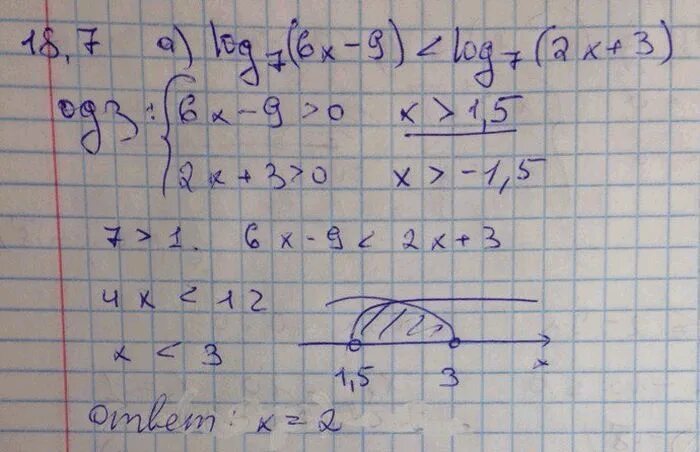 18,7 а) log₇(6x-9) < log₇(2x+3)
ОДЗ: { 6x-9>0 x>1,5
2x+3>0 x>-1,5
7>1. 6x-9< 2x+3
4x < 12
x < 3
1,5 3 x
Ответ: x=2